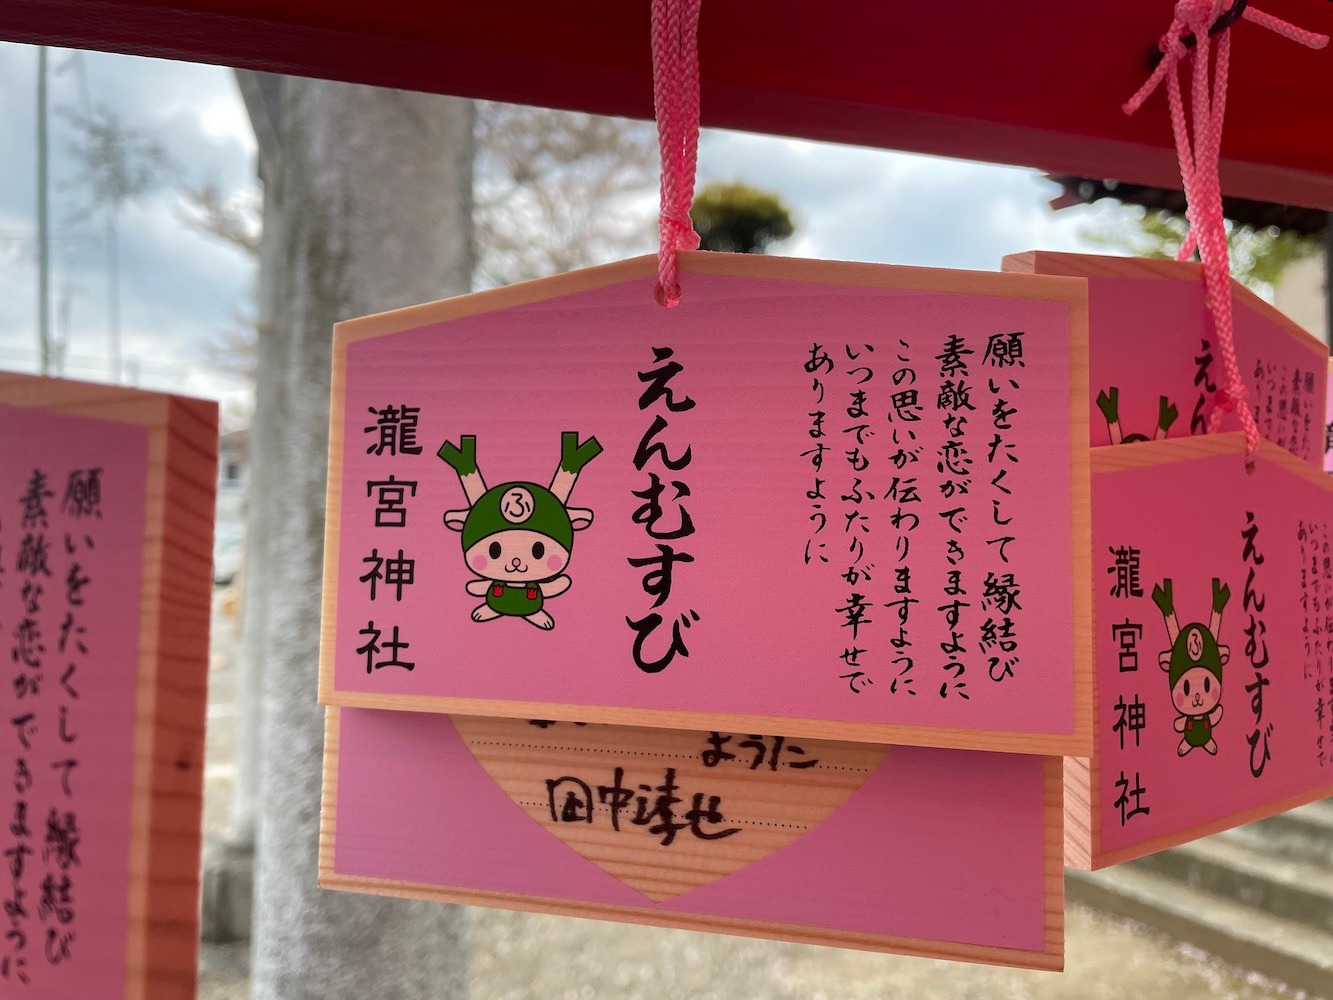 願いをたくして縁結び
素敵な恋ができますように
この思いが伝わりますように
いつまでもふたりが幸せで
ありますように
えんむすび
ふ
瀧宮神社
ように
願いをたくして縁結び
素敵な恋ができますように
えん
願い
素敵な恋
この思い
いつまで
ありま
この思いが伝わりますように
いつまでもふたりが幸せで
ありますように
えんむすび
ふ
瀧宮神社